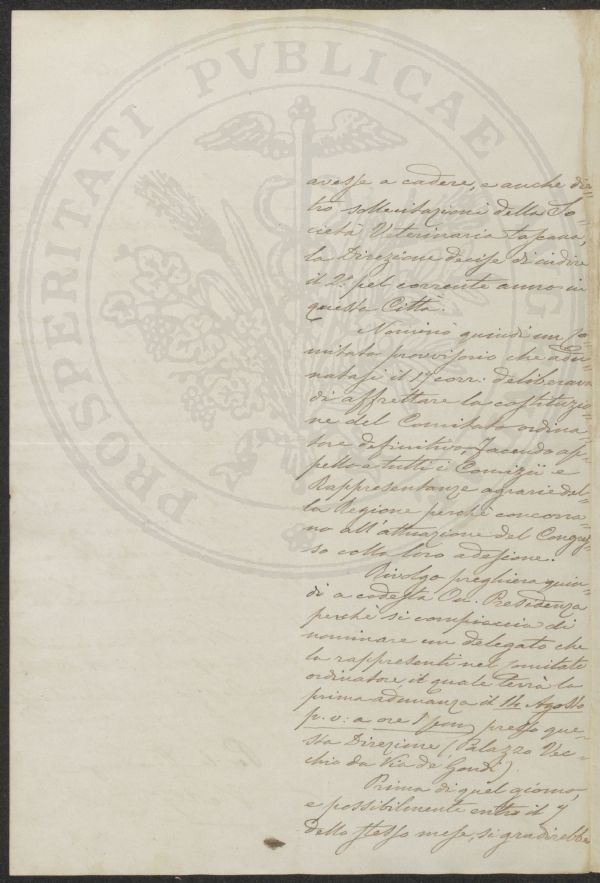 PROSPERITATI PVBLICAE
avesse a cadere, e anche die=
tro sollecitazioni della So=
cietà Veterinaria toscana,
la Direzione decise di indire
il 2º pel corrente anno in
questa Città.
Nominò quindi un Co=
mitato provvisorio che adu=
natasi il 17 corr: deliberava
di affrettare la costituzio=
ne del Comitato ordina=
tore definitivo, facendo ap=
pello a tutti i Comizii e
Rappresentanze agrarie del=
la Regione perché concorra=
no all'attuazione del Congres=
so colla loro adesione.
Rivolgo preghiera quin=
di a codesta On. Presidenza
perchè si compiaccia di
nominare un delegato che
la rappresenti nel Comitato
ordinatore il quale terrà la
prima adunanza il 14 Agosto
p. v: a ore 1 pom, presso que=
sta Direzione (Palazzo Vec=
chio da Via de' Gondi).
Prima di quel giorno,
e possibilmente entro il 7
dello stesso mese, si gradirebbe